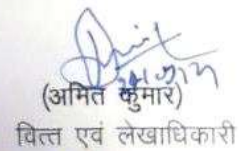 (अमित कुमार)
वित्त एवं लेखाधिकारी